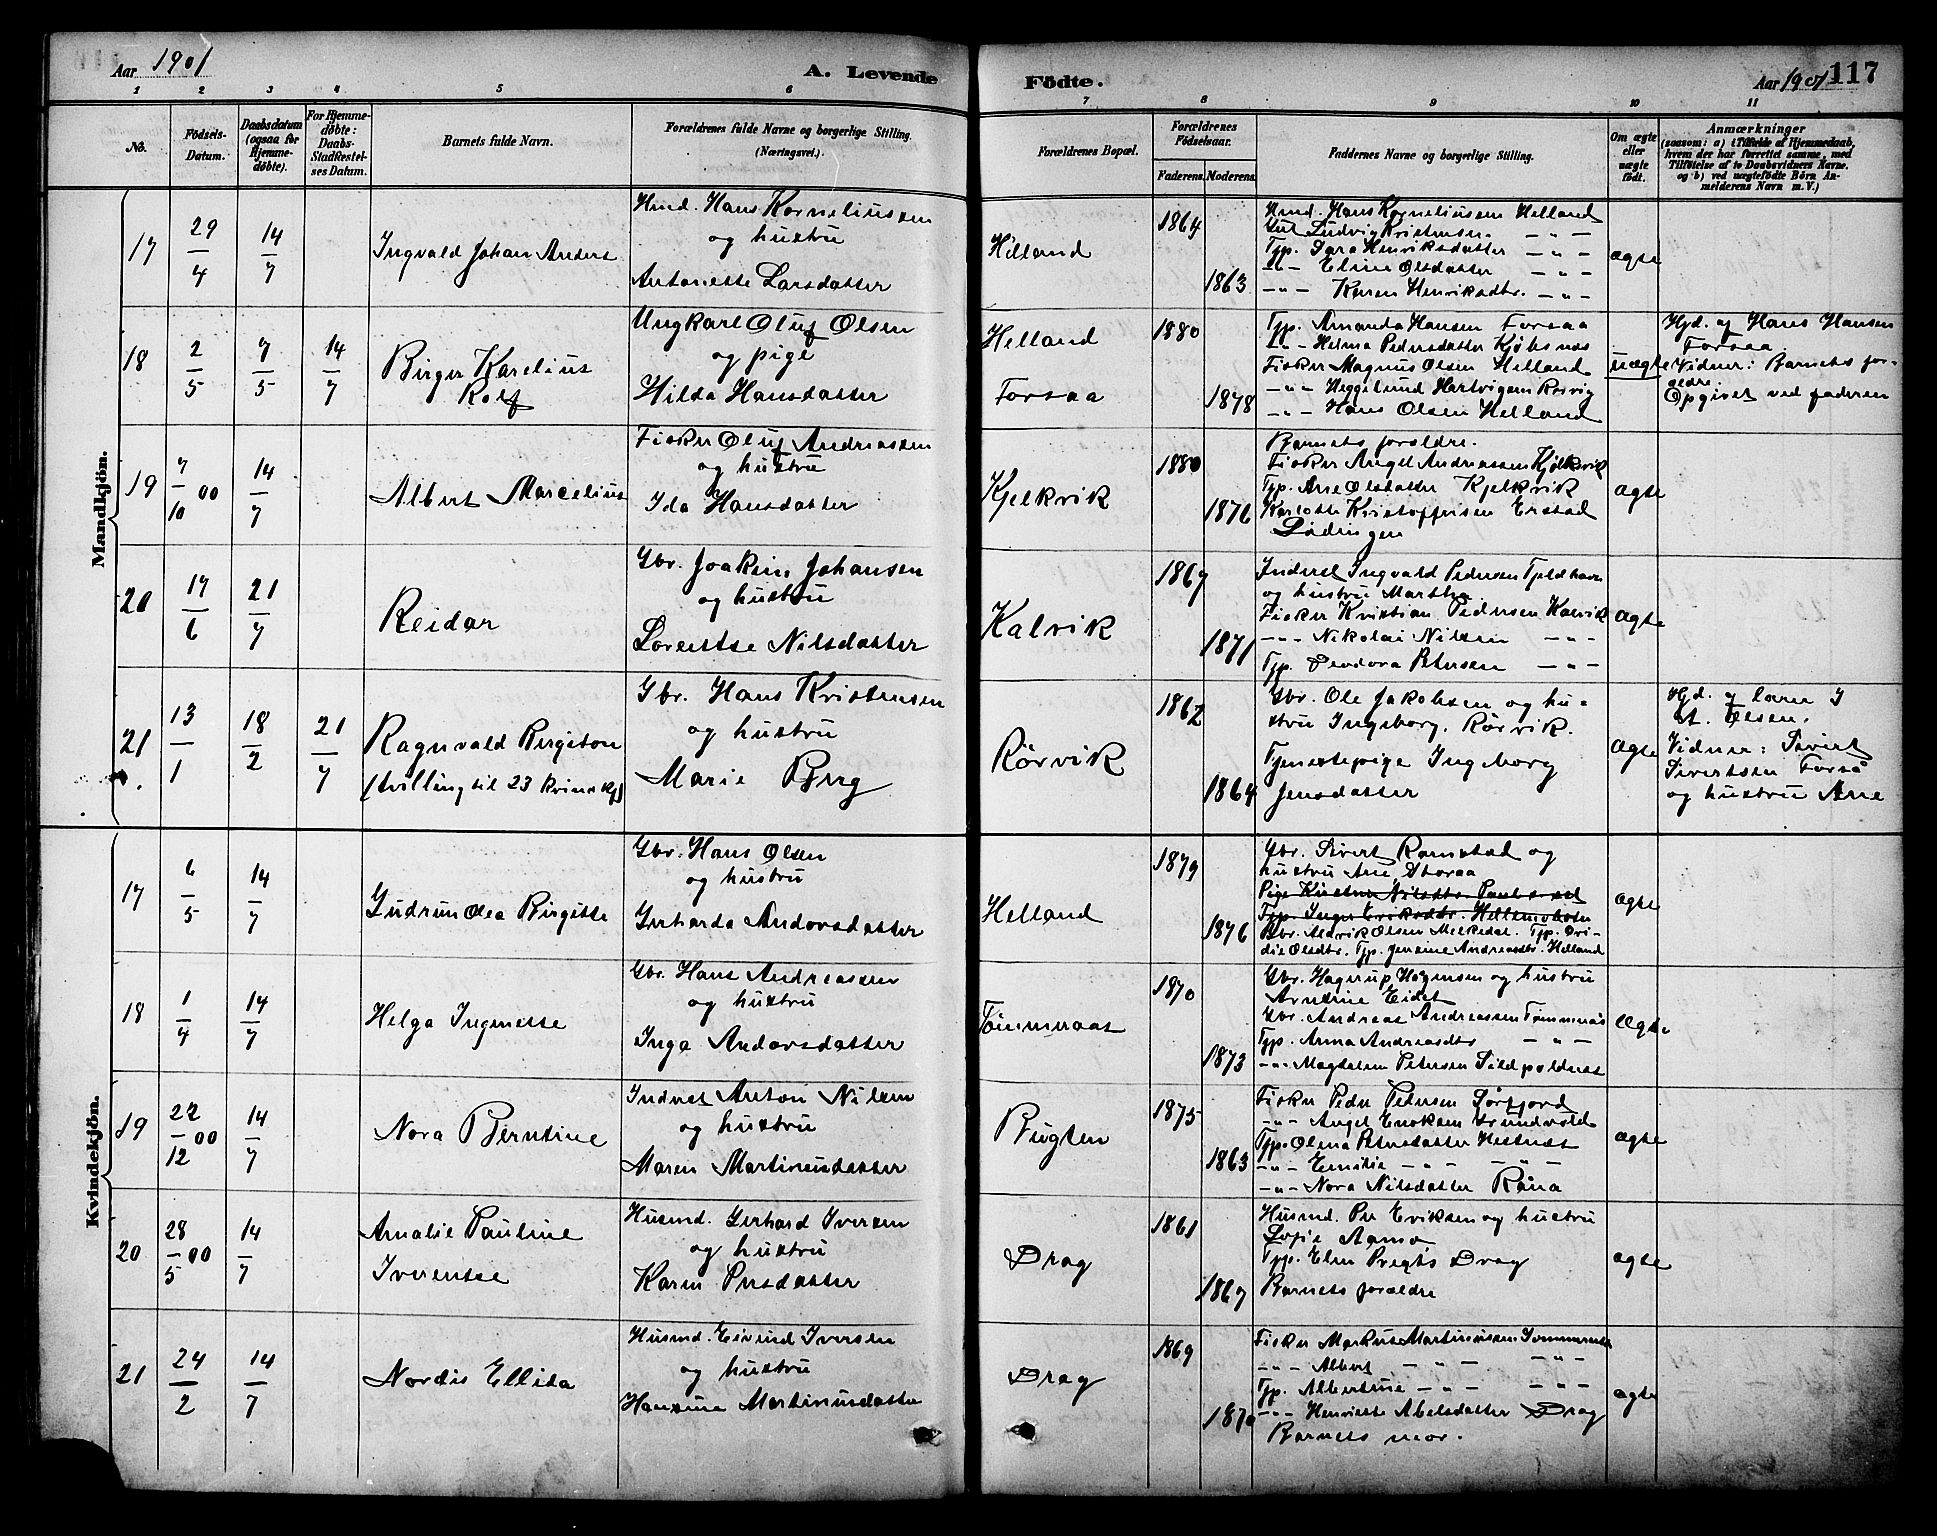 Aar 1901
A. Levende Fødte.
Aar 1901 117
1 2 3 4 5 6 7 8 9 10 11
No.
Fødsels-Datum.
Daabsdatum (ogsaa for Hjemmedøbte).
For Hjemmedøbte: Daabs-Stadfestelses Datum.
Barnets fulde Navn.
Forældrenes fulde Navne og borgerlige Stilling. (Næringsvei).
Forældrenes Bopæl.
Forældrenes Fødselsaar.
Faderens. Moderens.
Faddernes Navne og borgerlige Stilling.
Om ægte eller uægte født.
Anmærkninger
(saasom: a) i Tilfælde af Hjemmedaab, hvem der har forrettet samme, med Tilføielse af to Daabsvidners Navne. og b) ved uægtefødte Børn Anmelderens Navn m. V.)
Mandkjøn.
17 29/4 14/7 Ingvald Johan Anders
Hmd. Hans Korneliussen
og hustru
Antonette Larsdatter
Helland 1864 1863
Hmd. Hans Korneliussen Helland
Gut Ludvig Kristensen — " —
Tjp. Sara Henriksdatter — " —
— " — Eline Olsdatter — " —
— " — Karen Henriksdtr. — " —
ægte
18 2/5 7/5 14/7 Birger Karelius
Rolf
Ungkarl Oluf Olsen
og pige
Hilda Hansdatter
Helland
Forsaa
1880 1878
Tjp. Amanda Hansen Forsaa
— " — Helma Pedersdatter Kjøbsnes
Fisker Magnus Olsen Helland
— " — Heggelund Hartvigsen Rørvig
— " — Hans Olsen Helland
uægte
Hjd. af Hans Hansen
Forsaa.
Vidner: Barnets for-
ældre.
Opgivet ved faderen
19 7/10 00 14/7 Albert Marcelius
Fisker Oluf Andreassen
og hustru
Ida Hansdatter
Kjelkvik 1880 1876
Barnets forældre.
Fisker Angel Andreassen Kjelkvik
Tjp. Ane Olsdatter Kjelkvik
Karlotte Kristoffersen Erstad
Lødingen
ægte
20 17/6 21/7 Reidar
Gbr. Joakim Johansen
og hustru
Lorentse Nilsdatter
Kalvik 1867 1871
Inderst Ingvald Pedersen Tjeldhavn
og hustru Martha
Fisker Kristian Pedersen Kalvik
— " — Nikolai Nilsen — " —
Tjp. Teodora Petersen — " —
ægte
21 13/1 18/2 21/7 Ragnvald Birgiton
(tvilling til 23 kvindekj)
Gbr. Hans Kristensen
og hustru
Marie Berg
Rørvik 1862 1864
Gbr. Ole Jakobsen og hu-
stru Ingeborg, Rørvik.
Tjenestepige Ingeborg
Jensdatter
ægte
Hjd. af lærer J
A. Olsen.
Vidner: Sivert
Sivertsen Forså
og hustru Ane
Kvindekjøn.
17 6/5 14/7 Gudrun Olea Birgitte
Gbr. Hans Olsen
og hustru
Gerharda Andorsdatter
Helland 1879 1876
Gbr. Sivert Ramstad og
hustru Ane, Storaa
Gbr. Aldrik Olsen Melkedal.
Tjp. Jensine Andreasdtr. Helland
ægte
18 1/4 14/7 Helga Ingmette
Gbr. Hans Andreassen
og hustru
Inga Andorsdatter
Tømmnaas 1870 1873
Gbr. Hagerup Hagensen og hustru
Arntine Eidet
Gbr. Andreas Andreassen Tømmnås
Tjp. Anna Andreasdtr — " —
— " — Magdalena Petersen Sildpoldnes
ægte
19 22/12 00 14/7 Nora Berntine
Inderst Anton Nilsen
og hustru
Maren Martinusdatter
Bugten 1875 1863
Fisker Peder Pedersen Sørfjord
— " — Angel Enoksen Grundvold
Tjp. Olena Petersdatter Hestnes
— " — Emilie — " — — " —
— " — Nora Nilsdatter Råna
ægte
20 28/5 00 14/7 Amalie Pauline
Iverentse
Husmd. Gerhard Iversen
og hustru
Karen Persdatter
Drag 1861 1867
Husmd. Per Eriksen og hustru
Sofie Aamo
Tjp. Elen Bregts Drag
Barnets forældre
ægte
21 24/2 14/7 Nordis Ellida
Husmd. Eivind Iversen
og hustru
Hansine Martinusdatter
Drag 1869 1870
Fisker Markus Martinussen Tømmernes
— " — Albert — " — — " —
Tjp. Albertine — " — — " —
— " — Henriette Abelsdatter Drag
Barnets mor.
ægte